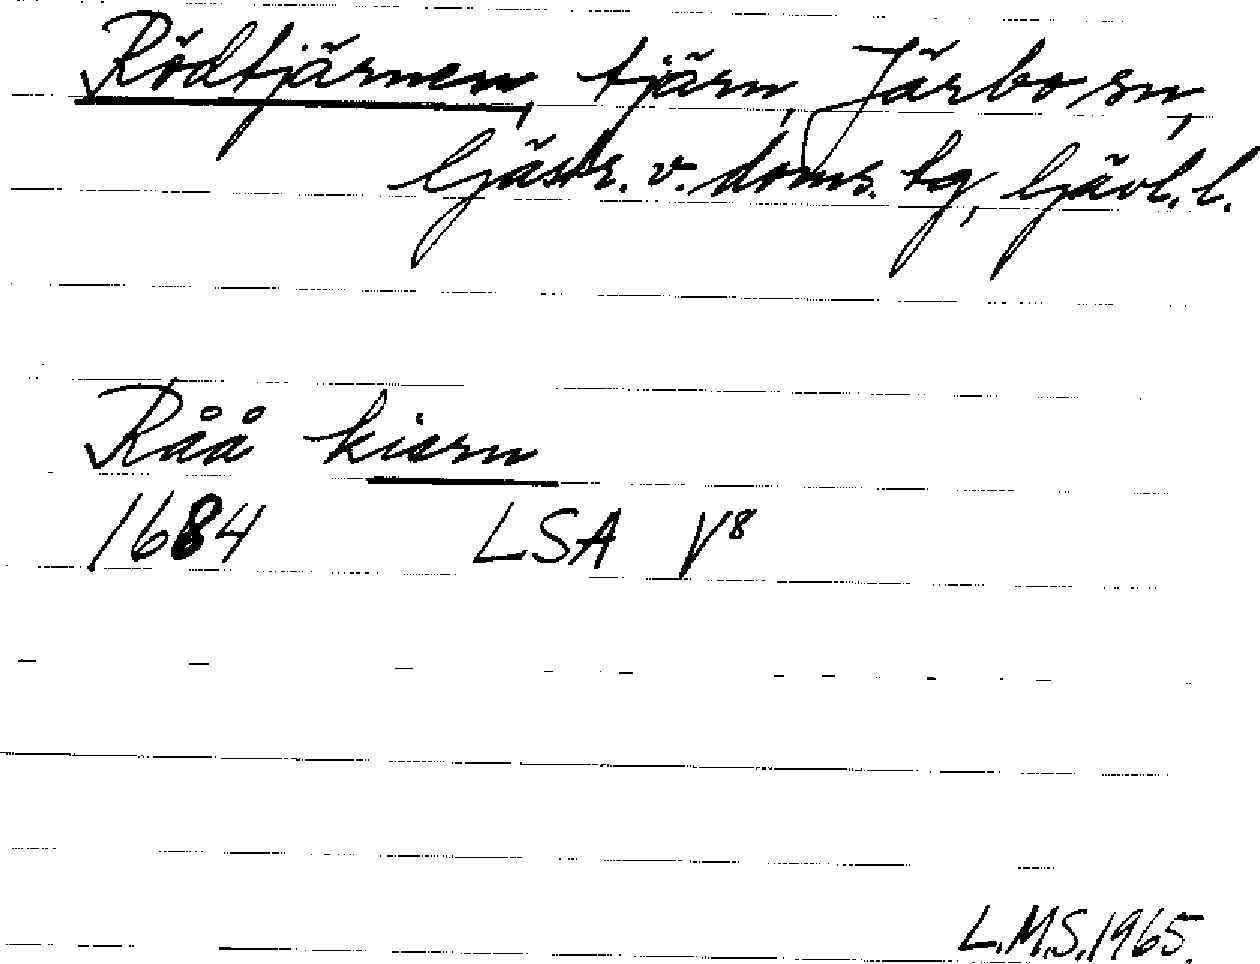 Rödtjärnen, tjärn, Järbo sn,
Gästr. v. doms. tg, Gävl. l.
Råå kiärn
1684 LSA V8
L.M.S. 1965.